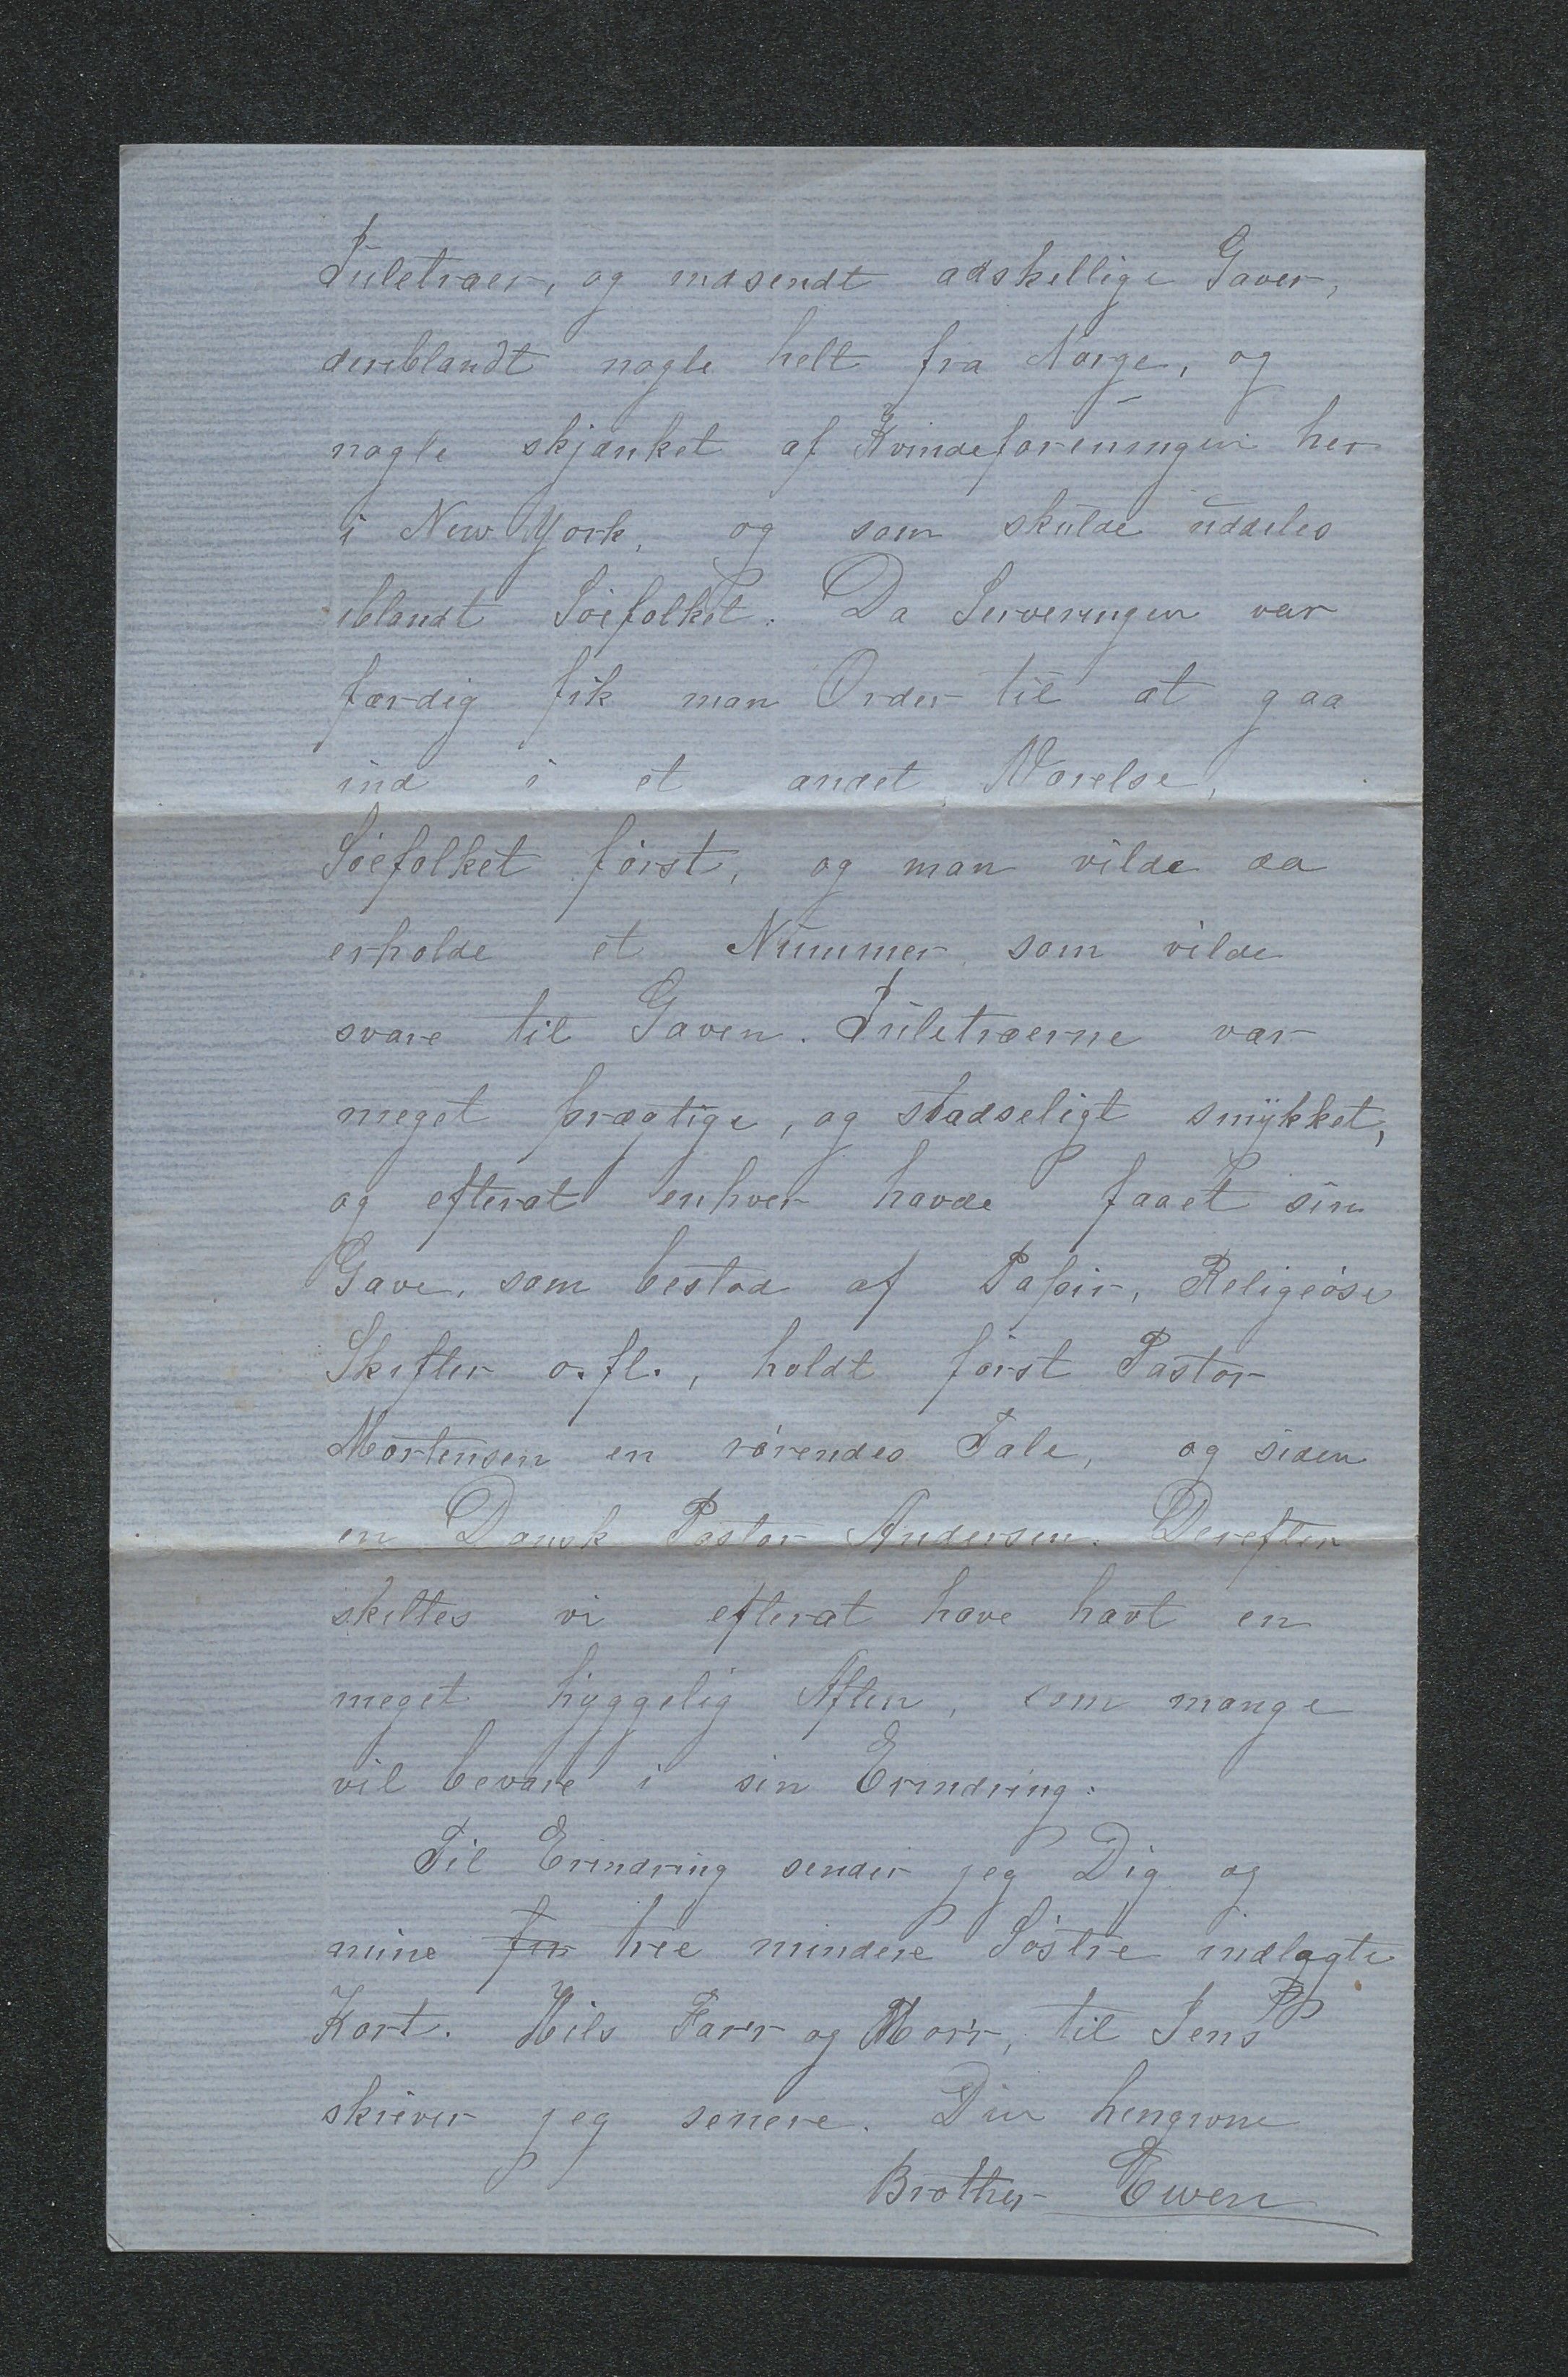 Juletræer, og indsendt adskellige Gaver,
deriblandt nogle helt fra Norge, og
nogle skjænket af Kvindeforeningen her
i New York, og som skulde uddeles
iblandt Söefolket. Da Serveringen var
færdig fik man Order til at gaa
ind i et andet Værelse,
Söefolket först, og man vilde da
erholde et Nummer som vilde
svare til Gaven. Juletræerne var
meget prægtige, og stadseligt smykket,
og efterat enhver havde faaet sin
Gave, som bestod af Papir, Religiöse
Skifter o.fl., holdt först Pastor
Mortensen en rörendes Tale, og siden
en Dansk Pastor Andersen. Derefter
skiltes vi efterat have havt en
meget hyggelig Aften, som mange
vil bevare i sin Erindring.
Til Erindring sender jeg Dig og
mine tre mindere Söstre indlagte
Kort. Hils Farr og Morr, til Jens
skriver jeg senere. Din hengivne
Brother Ewen